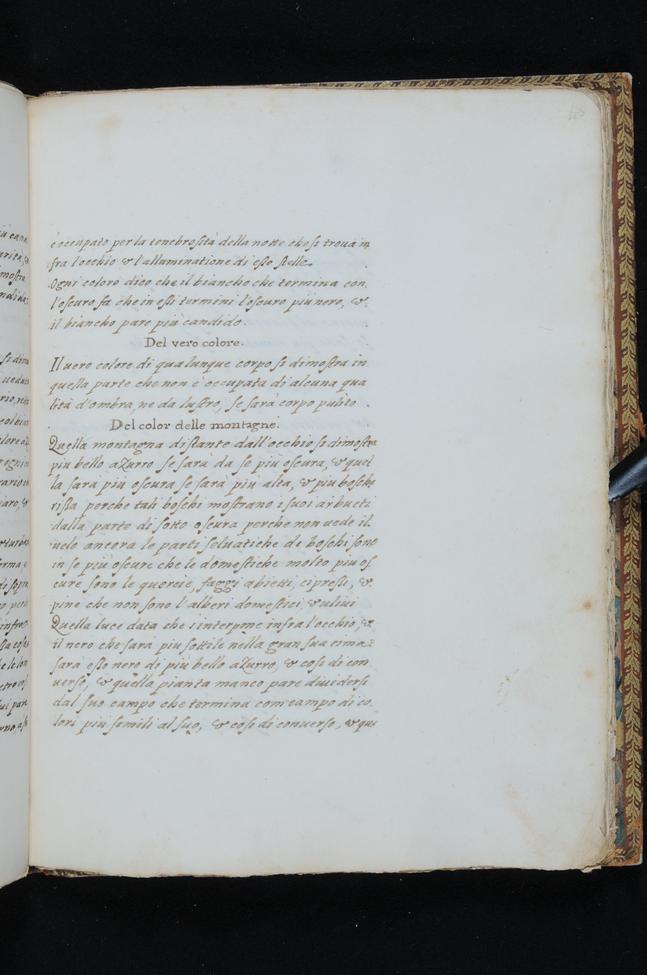 è occupato per la tenebrosità della notte che si trova in
fra l'occhio & l'alluminatione di esse stelle.
Ogni colore dico che il biancho che termina con
l'oscuro fa che in essi termini l'oscuro più nero, &
il biancho pare più candido.
Del vero colore.
Il vero colore di qualunque corpo si dimostra in
quella parte che non è occupata di alcuna qua
lità d'ombra, ne da lustro, se sarà corpo pulito
Del color delle montagne.
Quella montagna distante dall'occhio si dimostra
piu bello azurro se sarà da se più oscura, & quel
la sarà più oscura se sarà più alta, & più boschi
rissa perche tali boschi mostrano i suoi arbucti
dalla parte di sotto oscura perche non vede il
cielo ancora le parti selvatiche de boschi sono
in se più oscure che le domestiche molto più os
cure sono le quercie, faggi abietti cipressi, &
pine che non sono l'alberi domestici, & ulivi
Quella luce data che s interpone infra l'occhio &
il nero che sarà più sottile nella gran sua cima
sarà esso nero di più bello azurro, & cosi di con
verso, & quella pianta manco pare dividersi
dal suo campo che termina com campo di co
lori più simili al suo, & cosi di converso, & que